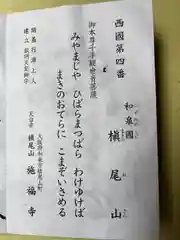 西國第四番
和泉國
槇尾山
御本尊千手観世音菩薩
みやまじや　ひばらまつばら　わけゆけば
まきのおてらに　こまぞいさめる
大阪府和泉市槇尾山町
天台宗　槇尾山　施福寺
開基　行満上人